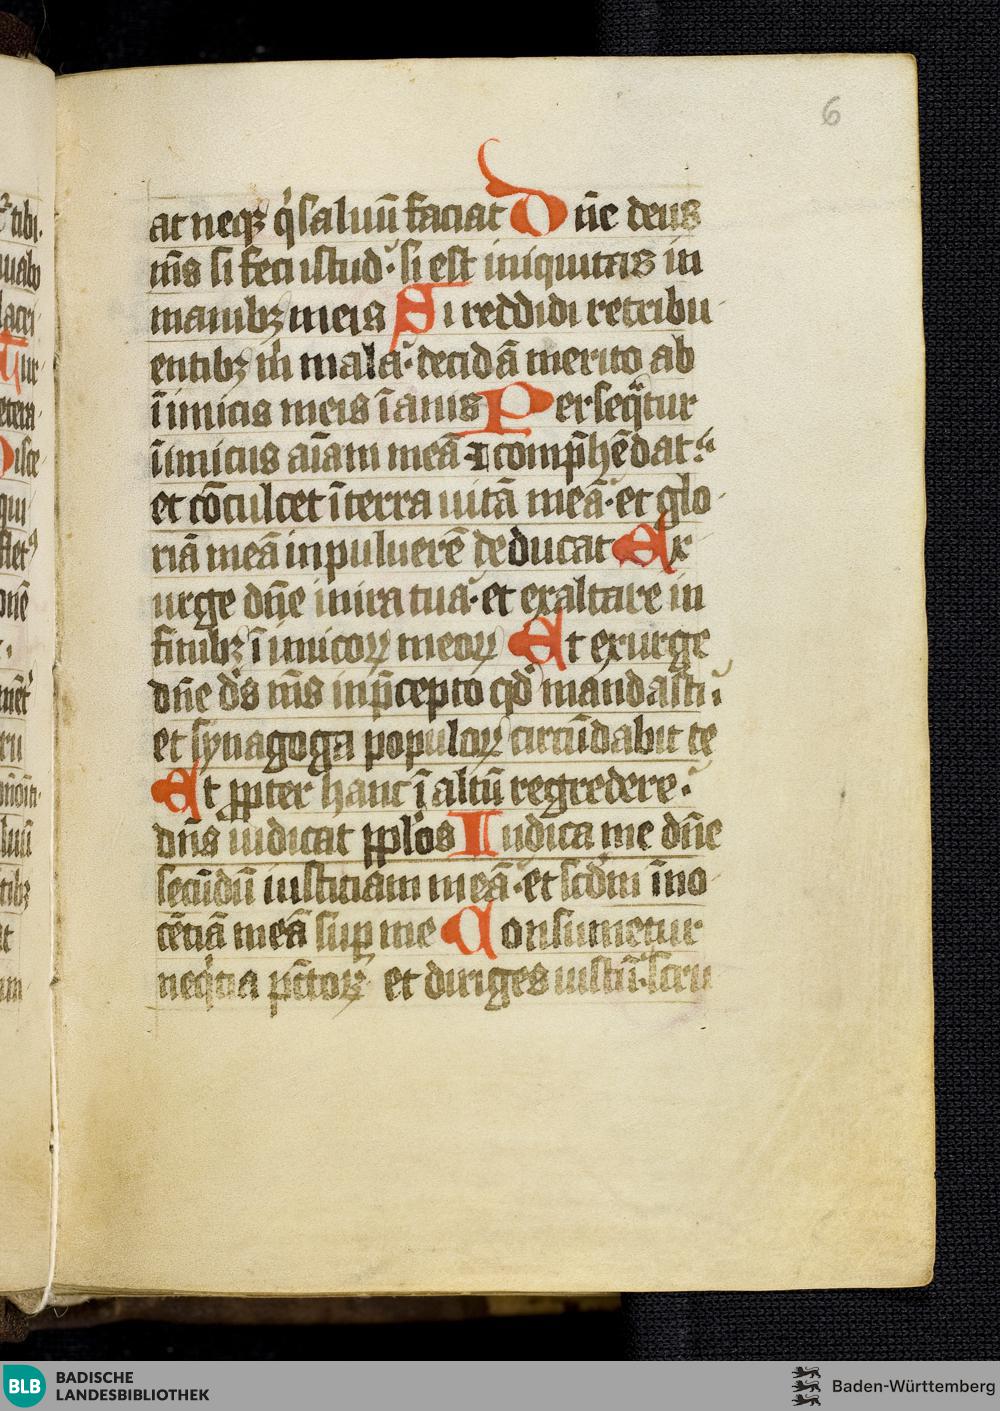 6
at neqꝫ q̇ saluū faciat Dn̄e deus
m̄s si feci istud· si est iniquitas in
manibꝫ meis Si reddidi retribu
entibꝫ m̄ mala· decidā merito ab
īimicis meis īanis Perseq̄tur
īimicus aīam meā ⁊ comp̄hēdat·
et cōculcet īterra uitā meā· et glo
riā meā inpuluerē deducat Ex
urge dn̄e inira tua· et exaltare in
finibꝫ īimicoꝝ meoꝝ Et exurge
dn̄e ds̄ m̄s inp̄cepto qd̄ mandasti·
et synagoga populoꝝ circūdabit te
Et ꝓpter hanc ī altū regredere·
dn̄s iudicat pp̄los Iudica me dn̄e
secūdū iusticiam meā· et scdm̄ īno
cētiā meā suꝑ me Consumetur
neq̇tia pc̄toꝝ et diriges iustū· scru
tibi·
BLB
BADISCHE
LANDESBIBLIOTHEK
Baden-Württemberg